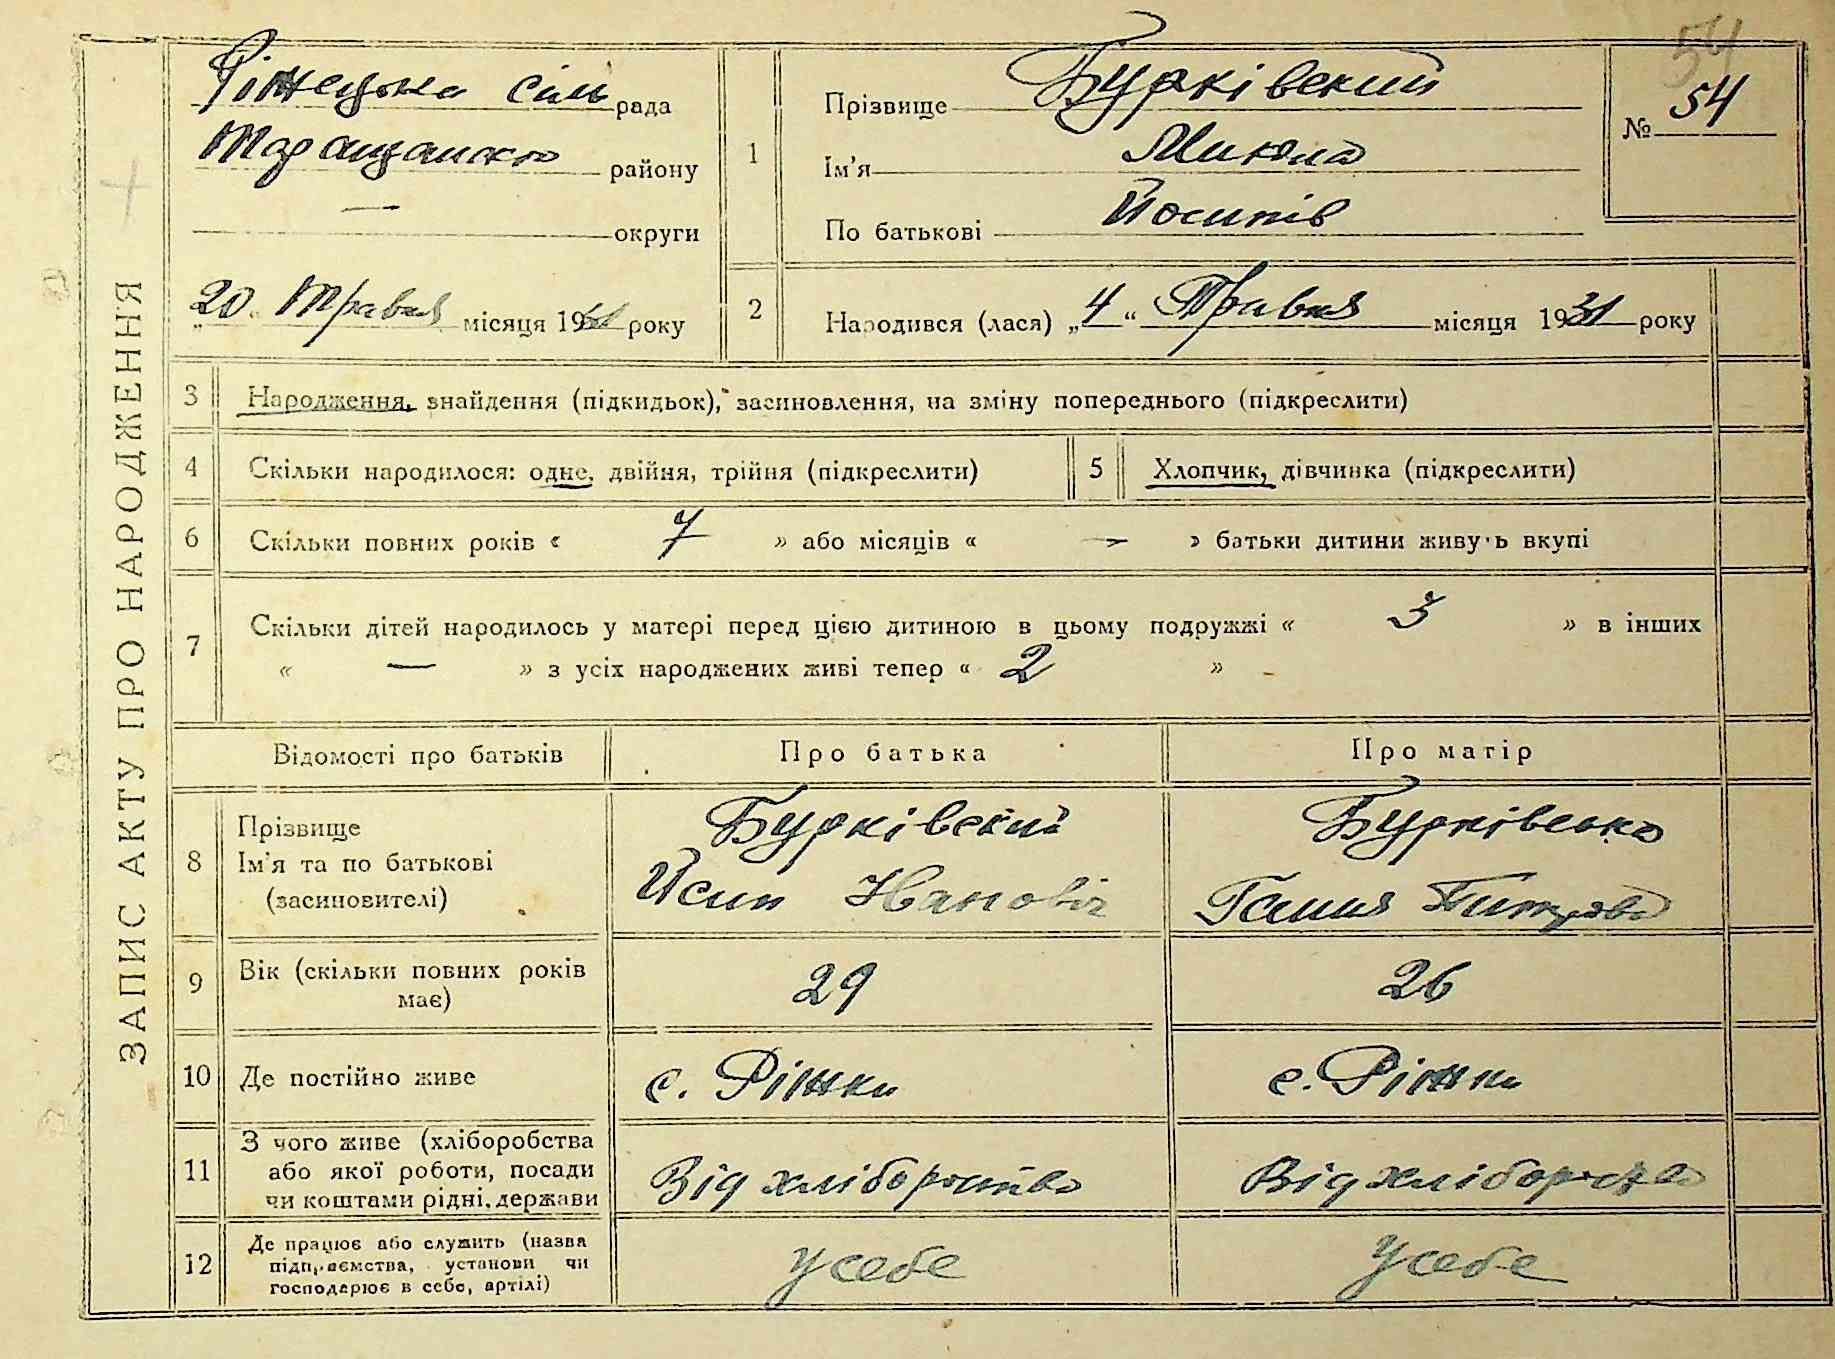 ЗАПИС АКТУ ПРО НАРОДЖЕННЯ
54
сіль рада
Таращанського району
— округи
„20“ Травня місяця 1931 року
1
Прізвище Бурківський
Ім'я Микола
По батькові Йосипів
№ 54
2
Народився (лася) „4“ Травня місяця 1931 року
3 Народження, знайдення (підкидьок), засиновлення, на зміну попереднього (підкреслити)
4 Скільки народилося: одне, двійня, трійня (підкреслити)
5 Хлопчик, дівчинка (підкреслити)
6 Скільки повних років « 7 » або місяців « — » батьки дитини живуть вкупі
7 Скільки дітей народилось у матері перед цією дитиною в цьому подружжі « 3 » в інших
« — » з усіх народжених живі тепер « 2 »
Відомості про батьків
Про батька
Про матір
8 Прізвище
Ім'я та по батькові
(засиновителі)
Бурківский
Йсип Іванович
Бурківська
Ганна
9 Вік (скільки повних років
має)
29
26
10 Де постійно живе
с. Ріжки
с. Ріжки
11 З чого живе (хліборобства
або якої роботи, посади
чи коштами рідні, держави
Від хлібороства
Від хлібороства
12 Де працює або служить (назва
підприємства, установи чи
господарює в себе, артілі)
у себе
у себе